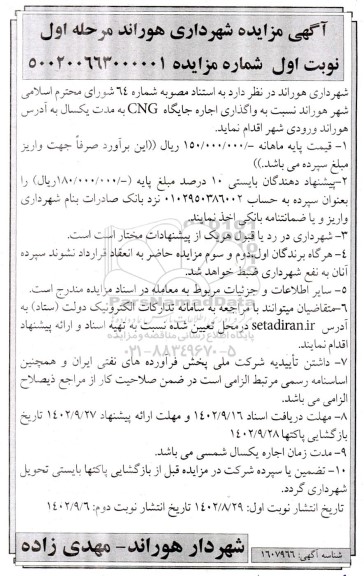 آگهی مزایده شهرداری هوراند مرحله اول
نوبت اول شماره مزایده ۵۰۰۲۰۰۶۶۳۰۰۰۰۰۱
شهرداری هوراند در نظر دارد به استناد مصوبه شماره ۶۴ شورای محترم اسلامی
شهر هوراند نسبت به واگذاری اجاره جایگاه CNG به مدت یکسال به آدرس
هوراند ورودی شهر اقدام نماید.
۱- قیمت پایه ماهانه ۱۵۰/۰۰۰/۰۰۰/- ریال ((این برآورد صرفاً جهت واریز
مبلغ سپرده می باشد.))
۲-پیشنهاد دهندگان بایستی ۱۰ درصد مبلغ پایه (۱۸۰/۰۰۰/۰۰۰/-ریال) را
بعنوان سپرده به حساب ۰۱۰۲۹۵۰۳۸۶۰۰۲ نزد بانک صادرات بنام شهرداری
واریز و یا ضمانتنامه بانکی اخذ نمایند.
۳- شهرداری در رد یا قبول هریک از پیشنهادات مختار است است.
۴- هرگاه برندگان اول،دوم و سوم مزایده حاضر به انعقاد قرارداد نشوند سپرده
آنان به نفع شهرداری ضبط خواهد شد.
۵- سایر اطلاعات و جزئیات مربوط به معامله در اسناد مزایده مندرج است.
۶-متقاضیان میتوانند با مراجعه به سامانه تدارکات الکترونیک دولت (ستاد) به
آدرس setadiran.ir درمحل تعیین شده نسبت به تهیه اسناد و ارائه پیشنهاد
اقدام نمایند.
۷- داشتن تأییدیه شرکت ملی پخش فرآورده های نفتی ایران و همچنین
اساسنامه رسمی مرتبط الزامی است در ضمن صلاحیت کار از مراجع ذیصلاح
الزامی می باشد.
۸- مهلت دریافت اسناد ۱۴۰۲/۹/۱۶ و مهلت ارائه پیشنهاد ۱۴۰۲/۹/۲۷ تاریخ
بازگشایی پاکتها ۱۴۰۲/۹/۲۸
۹- مدت زمان اجاره یکسال شمسی می باشد.
۱۰- تضمین یا سپرده شرکت در مزایده قبل از بازگشایی پاکتها بایستی تحویل
شهرداری گردد.
تاریخ انتشار نوبت اول: ۱۴۰۲/۸/۲۹ تاریخ انتشار نوبت دوم: ۱۴۰۲/۹/۶
شهردار هوراند- مهدی زاده
شناسه آگهی: ۱۶۰۷۹۶۶
ParsNamadData
پایگاه اطلاع رسانی مناقصه و مزایده
۰۲۱-۸۸۳۴۹۶۷۰-۵